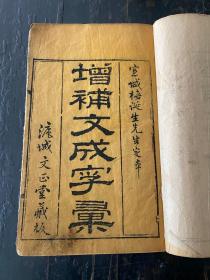 宣城梅誕生先生定本
增補文成字彙
滬城文正堂藏板